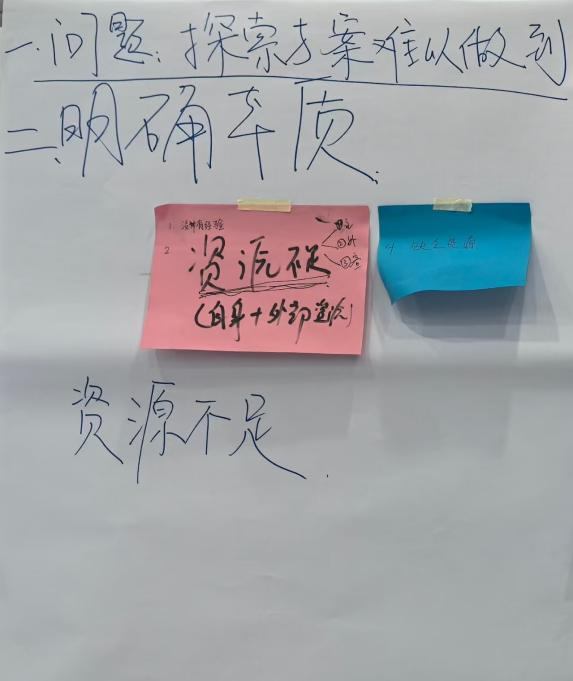 一.问题:探索方案难以做到
二.明确本质.
1. 没有经验
2. 资源不足
(自身+外部
4. 缺乏资源
资源不足.